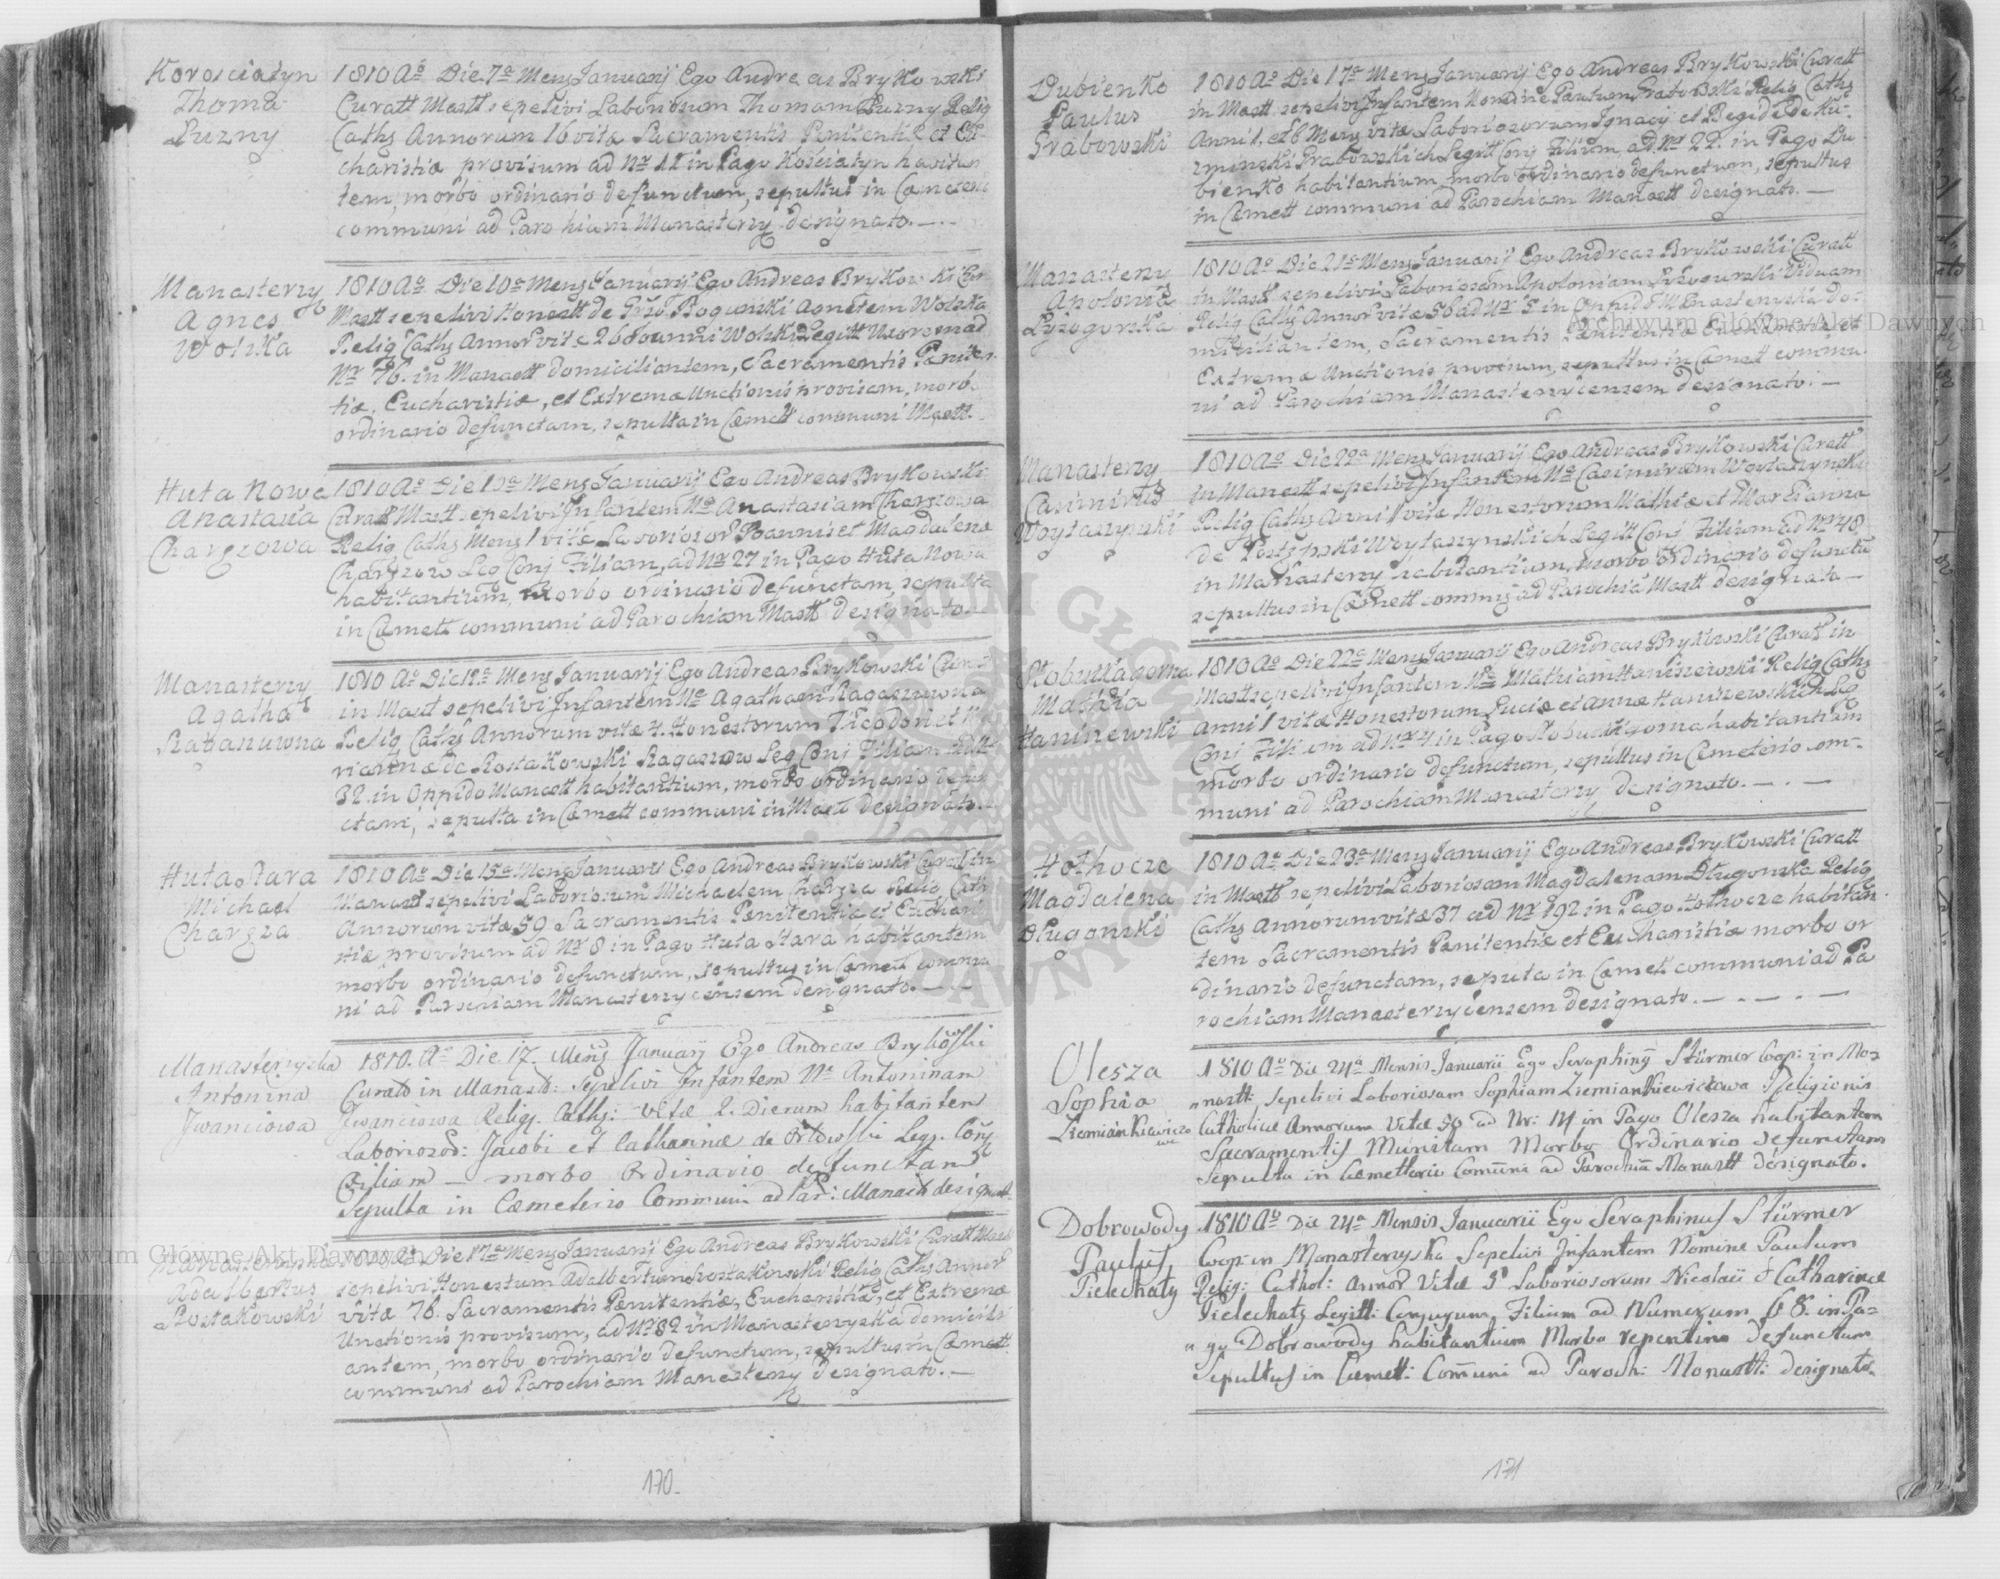 Korosciatyn
Thoma
Puzny
1810 Ao Die 7a Mens Januarij Ego Andreas Brykowski
Curatt Mastt sepelivi Laboriosum Thomam Puzny Relig
Caths Annorum 16 vitæ Sacramentis Penitentiæ et Eu-
charistiæ provisum ad Nr 11 in Pago Kościatyn habitan
tem, morbo ordinario defunctum, sepultus in Cœmeterio
communi ad Parochiam Manasterzy designato.—
Manasterzy
Agnes
Wolska
1810 Ao Die 10a Mens Januarij Ego Andreas Brykowski Cur
Mastt sepelivi Honestt de Boguński Agnetem Wolska
Relig Caths Annor vitæ 26 Joannis Wolski Legitt Uxorem ad
Nr 76. in Manastt domiciliantem, Sacramentis Pœniten
tiæ, Eucharistiæ, et Extremæ Unctionis provisam, morbo
ordinario defunctam, sepulta in Cœmett communi Mastt.
Huta Nowa
Anastasia
Chargzowa
1810 Ao Die Mens Januarij Ego Andreas Brykowski
Curatt Mastt sepelivi Infantem Ne Anastasiam Chargzowa
Relig Caths Mens 1 vitæ Laboriosor Joannis et Magdalenæ
Chargzow Leg Conj Filiam, ad Nr 27 in Pago Huta Nowa
habitantium, Morbo ordinario defunctam, sepulta
in Cœmett communi ad Parochiam Mastt designato.—
Manasterzy
Agatha
1810 Ao Die Mens Januarij Ego Andreas Brykowski Curatt
in Mastt sepelivi Infantem Ne Agatham
Relig Caths Annorum vitæ 4. Honestorum Theodori et Ma
riannæ de Rostakowski Ragaszow Leg Conj Filiam ad Nr
32. in Oppido Manastt habitantium, morbo ordinario defun
ctam, sepulta in Cœmett communi in Mastt designato.—
Huta Stara
Michael
Chargza
1810 Ao Die 15a Mens Januarij Ego Andreas Brykowski Curatt in
Manastt sepelivi Laboriosum Michaelem Chargza Relig Cath
Annorum vitæ 59 Sacramentis Penitentiæ et Euchari
stiæ provisum ad Nr 8 in Pago Huta Stara habitantem
morbo ordinario defunctum, sepultus in Cœmett commu
ni ad Parochiam Manasterzycensem designato.—
Manasterzyska
Antonina
Iwanciowa
1810. Ao Die 17. Mens Januarij Ego Andreas Brykowski
Curatt in Manast: Sepelivi Infantem Ne Antoninam
Iwanciowa Relig. Caths: vitæ 2. Dierum habitanten
Laboriosor: Jacobi et Catharinæ de Orłowski Leg. Conj
Filiam — morbo Ordinario defunctam
Sepulta in Cœmeterio Communi ad Par: Manastt designat.
Manasterzyska
Adalbertus
Rostakowski
1810 Ao Die 17a Mens Januarij Ego Andreas Brykowski Curatt Mastt
sepelivi Honestum Adalbertum Rostakowski Relig Caths Annor
vitæ 76. Sacramentis Pœnitentiæ, Eucharistiæ, et Extremæ
Unctionis provisum, ad Nr 82 in Manasterzyska domicili
antem, morbo ordinario defunctum, sepultus in Cœmett
communi ad Parochiam Manasterzy designato.—
170.
Dubienko
Paulus
Grabowski
1810 Ao Die 17a Mens Januarij Ego Andreas Brykowski Curatt
in Mastt sepelivi Infantem Nomine Paulum Grabowski Relig Caths
Anni 1. et 6 Mens vitæ Laboriosorum Ignacij et de Ku-
zminski Grabowskich Legitt Conj Filium, ad Nr 22. in Pago Du
bienko habitantium, morbo ordinario defunctum, sepultus
in Cœmett communi ad Parochiam Manastt designato.—
Manasterzy
Apolonia
Lyzogorska
1810 Ao Die 21a Mens Januarij Ego Andreas Brykowski Curatt
in Mastt sepelivi Laboriosam Apoloniam Viduam
Relig Caths Annor vitæ 56 ad Nr 5 in Oppido Manasterzyska do-
miciliantem, Sacramentis Penitentiæ Eucharistiæ et
Extremæ Unctionis provisam, sepultus in Cœmett commu
ni ad Parochiam Manasterzycensem designato.—
Manasterzy
Casimirus
Woytaszynski
1810 Ao Die 22a Mens Januarij Ego Andreas Brykowski Curatt
in Manastt sepelivi Infantem Ne Casimirum Woytaszynski
Relig Caths Anni 1 vitæ Honestorum Mathiæ et Marianna
de Woytaszynskich Legitt Conj Filium ad Nr 48
in Manasterzy habitantium, morbo ordinario defunctu
sepultus in Cœmett communi ad Parochia Mastt designato—
Mathia
Haniszewski
1810 Ao Die 22a Mens Januarij Ego Andreas Brykowski Curatt in
Mastt sepelivi Infantem Ne Mathiam Haniszewski Relig Caths
Anni 1 vitæ Honestorum Luciæ et Annæ Haniszewskich Leg
Conj Filium ad Nr 4 in Pago habitantium
morbo ordinario defunctum, sepultus in Cœmeterio com-
muni ad Parochiam Manasterzy designato.—.—
Hothocze
Magdalena
Długonski
1810 Ao Die 23a Mens Januarij Ego Andreas Brykowski Curatt
in Mastt sepelivi Laboriosam Magdalenam Długonska Relig
Caths Annorum vitæ 37 ad Nr 192 in Pago Hothocze habitan
tem Sacramentis Penitentiæ et Eucharistiæ morbo or
dinario defunctam, sepulta in Cœmett communi ad Pa
rochiam Manasterzycensem designato.—.—.—
Olesza
Sophia
Ziemiankiewiczo
wa
1810 Ao Die 24a Mensis Januarii Ego Seraphinq Stürmer Coop: in Mo-
nastt: sepelivi Laboriosam Sophiam Ziemiankiewiczowa Religionis
Catholicæ Annorum Vitæ 50 ad Nr: 14 in Pago Olesza habitantem
Sacramentis Munitam Morbo Ordinario defunctam
Sepulta in Cœmetterio Comuni ad Parochia Monastt designato.
Dobrowody
Paulus
Pielechaty
1810 Ao Die 24a Mensis Januarii Ego Seraphinus Stürmer
Coop in Monasterzyska Sepelivi Infantem Nomine Paulum
Relig: Cathol: Annor Vitæ 3 Laboriosorum Nicolaii & Catharinæ
Pielechaty Legitt: Conjugum, Filium ad Numerum 68. in Pa-
go Dobrowody habitantium Morbo repentino defunctum
Sepultus in Cœmett: Comuni ad Paroch: Monastt: designato.
171
Archiwum Główne Akt Dawnych
Archiwum Główne Akt Dawnych
ARCHIWUM GŁÓWNE AKT DAWNYCH